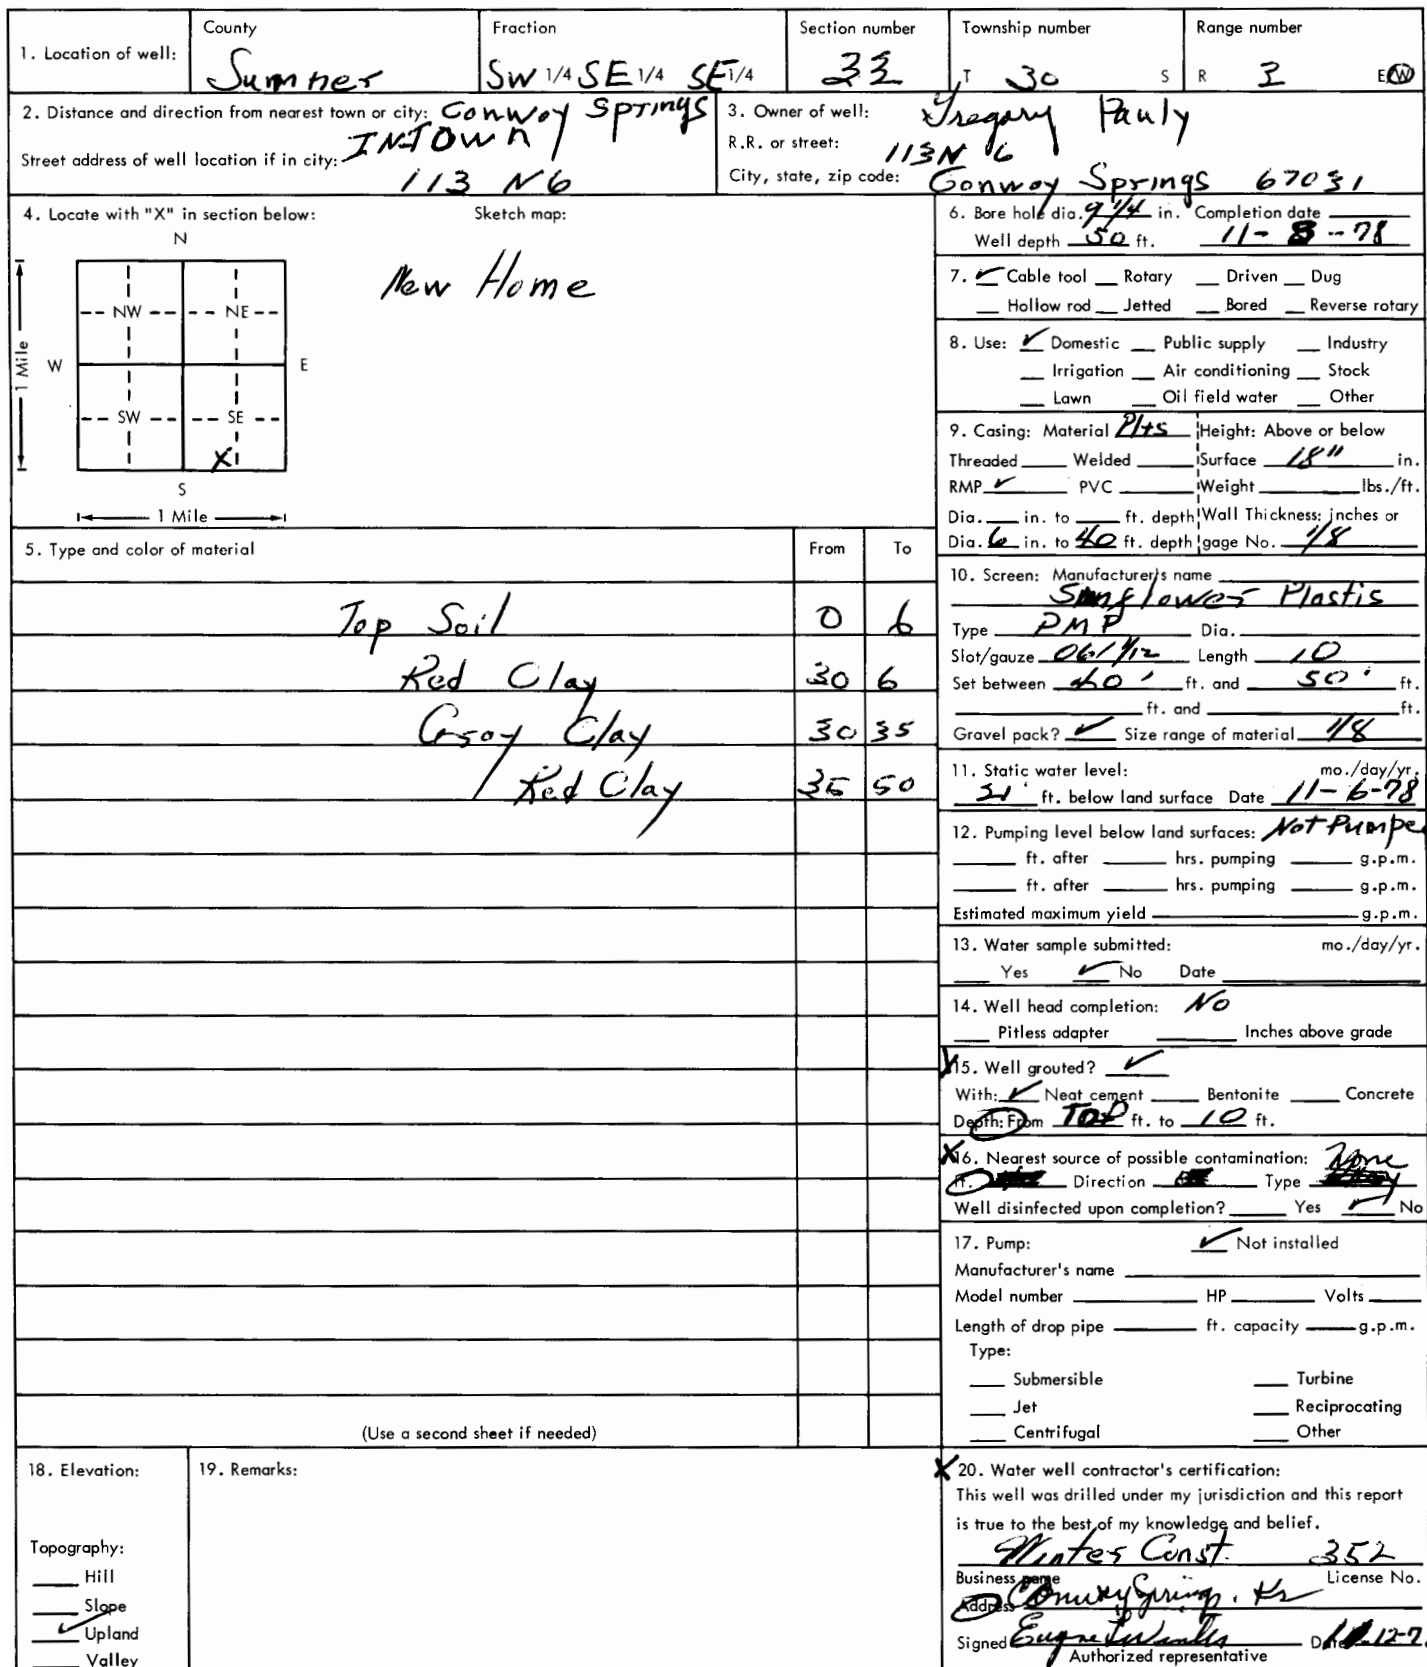 1. Location of well:
County
Sumner
Fraction
SW 1/4 SE 1/4 SE 1/4
Section number
Township number
T 30 S
Range number
R 3 E W
2. Distance and direction from nearest town or city: Conwoy Springs
INTOWN
Street address of well location if in city:
113 N 6
3. Owner of well: Gregory Pauly
R.R. or street: 113 N 6
City, state, zip code: Conwoy Springs 67031
4. Locate with "X" in section below:
Sketch map:
New Home
N
NW NE
W E
SW SE
X
S
1 Mile
1 Mile
5. Type and color of material From To
Top Soil 0 6
Red Clay 30 6
Gray Clay 30 35
Red Clay 35 50
(Use a second sheet if needed)
6. Bore hole dia. 9 1/4 in. Completion date
Well depth 50 ft. 11-8-78
7. ✓ Cable tool Rotary Driven Dug
Hollow rod Jetted Bored Reverse rotary
8. Use: ✓ Domestic Public supply Industry
Irrigation Air conditioning Stock
Lawn Oil field water Other
9. Casing: Material Plts Height: Above or below
Threaded Welded Surface 18" in.
RMP ✓ PVC Weight lbs./ft.
Dia. in. to ft. depth Wall Thickness: inches or
Dia. 6 in. to 40 ft. depth gage No. 1/8
10. Screen: Manufacturer's name
Sunflower Plastis
Type PMP Dia.
Slot/gauze Length 10
Set between 40' ft. and 50' ft.
ft. and ft.
Gravel pack? ✓ Size range of material 1/8
11. Static water level: mo./day/yr.
ft. below land surface Date 11-6-78
12. Pumping level below land surfaces: Not Pumpe
ft. after hrs. pumping g.p.m.
ft. after hrs. pumping g.p.m.
Estimated maximum yield g.p.m.
13. Water sample submitted: mo./day/yr.
Yes ✓ No Date
14. Well head completion: NO
Pitless adapter Inches above grade
15. Well grouted? ✓
With: ✓ Neat cement Bentonite Concrete
Depth: From TOP ft. to 10 ft.
X 16. Nearest source of possible contamination: None
ft. Direction Type
Well disinfected upon completion? Yes ✓ No
17. Pump: ✓ Not installed
Manufacturer's name
Model number HP Volts
Length of drop pipe ft. capacity g.p.m.
Type:
Submersible Turbine
Jet Reciprocating
Centrifugal Other
18. Elevation:
Topography:
Hill
Slope
✓ Upland
Valley
19. Remarks:
X 20. Water well contractor's certification:
This well was drilled under my jurisdiction and this report
is true to the best of my knowledge and belief.
Winter Const. 352
Business name License No.
Address Conway Springs, Ks
Signed Eugene Date 12-7
Authorized representative